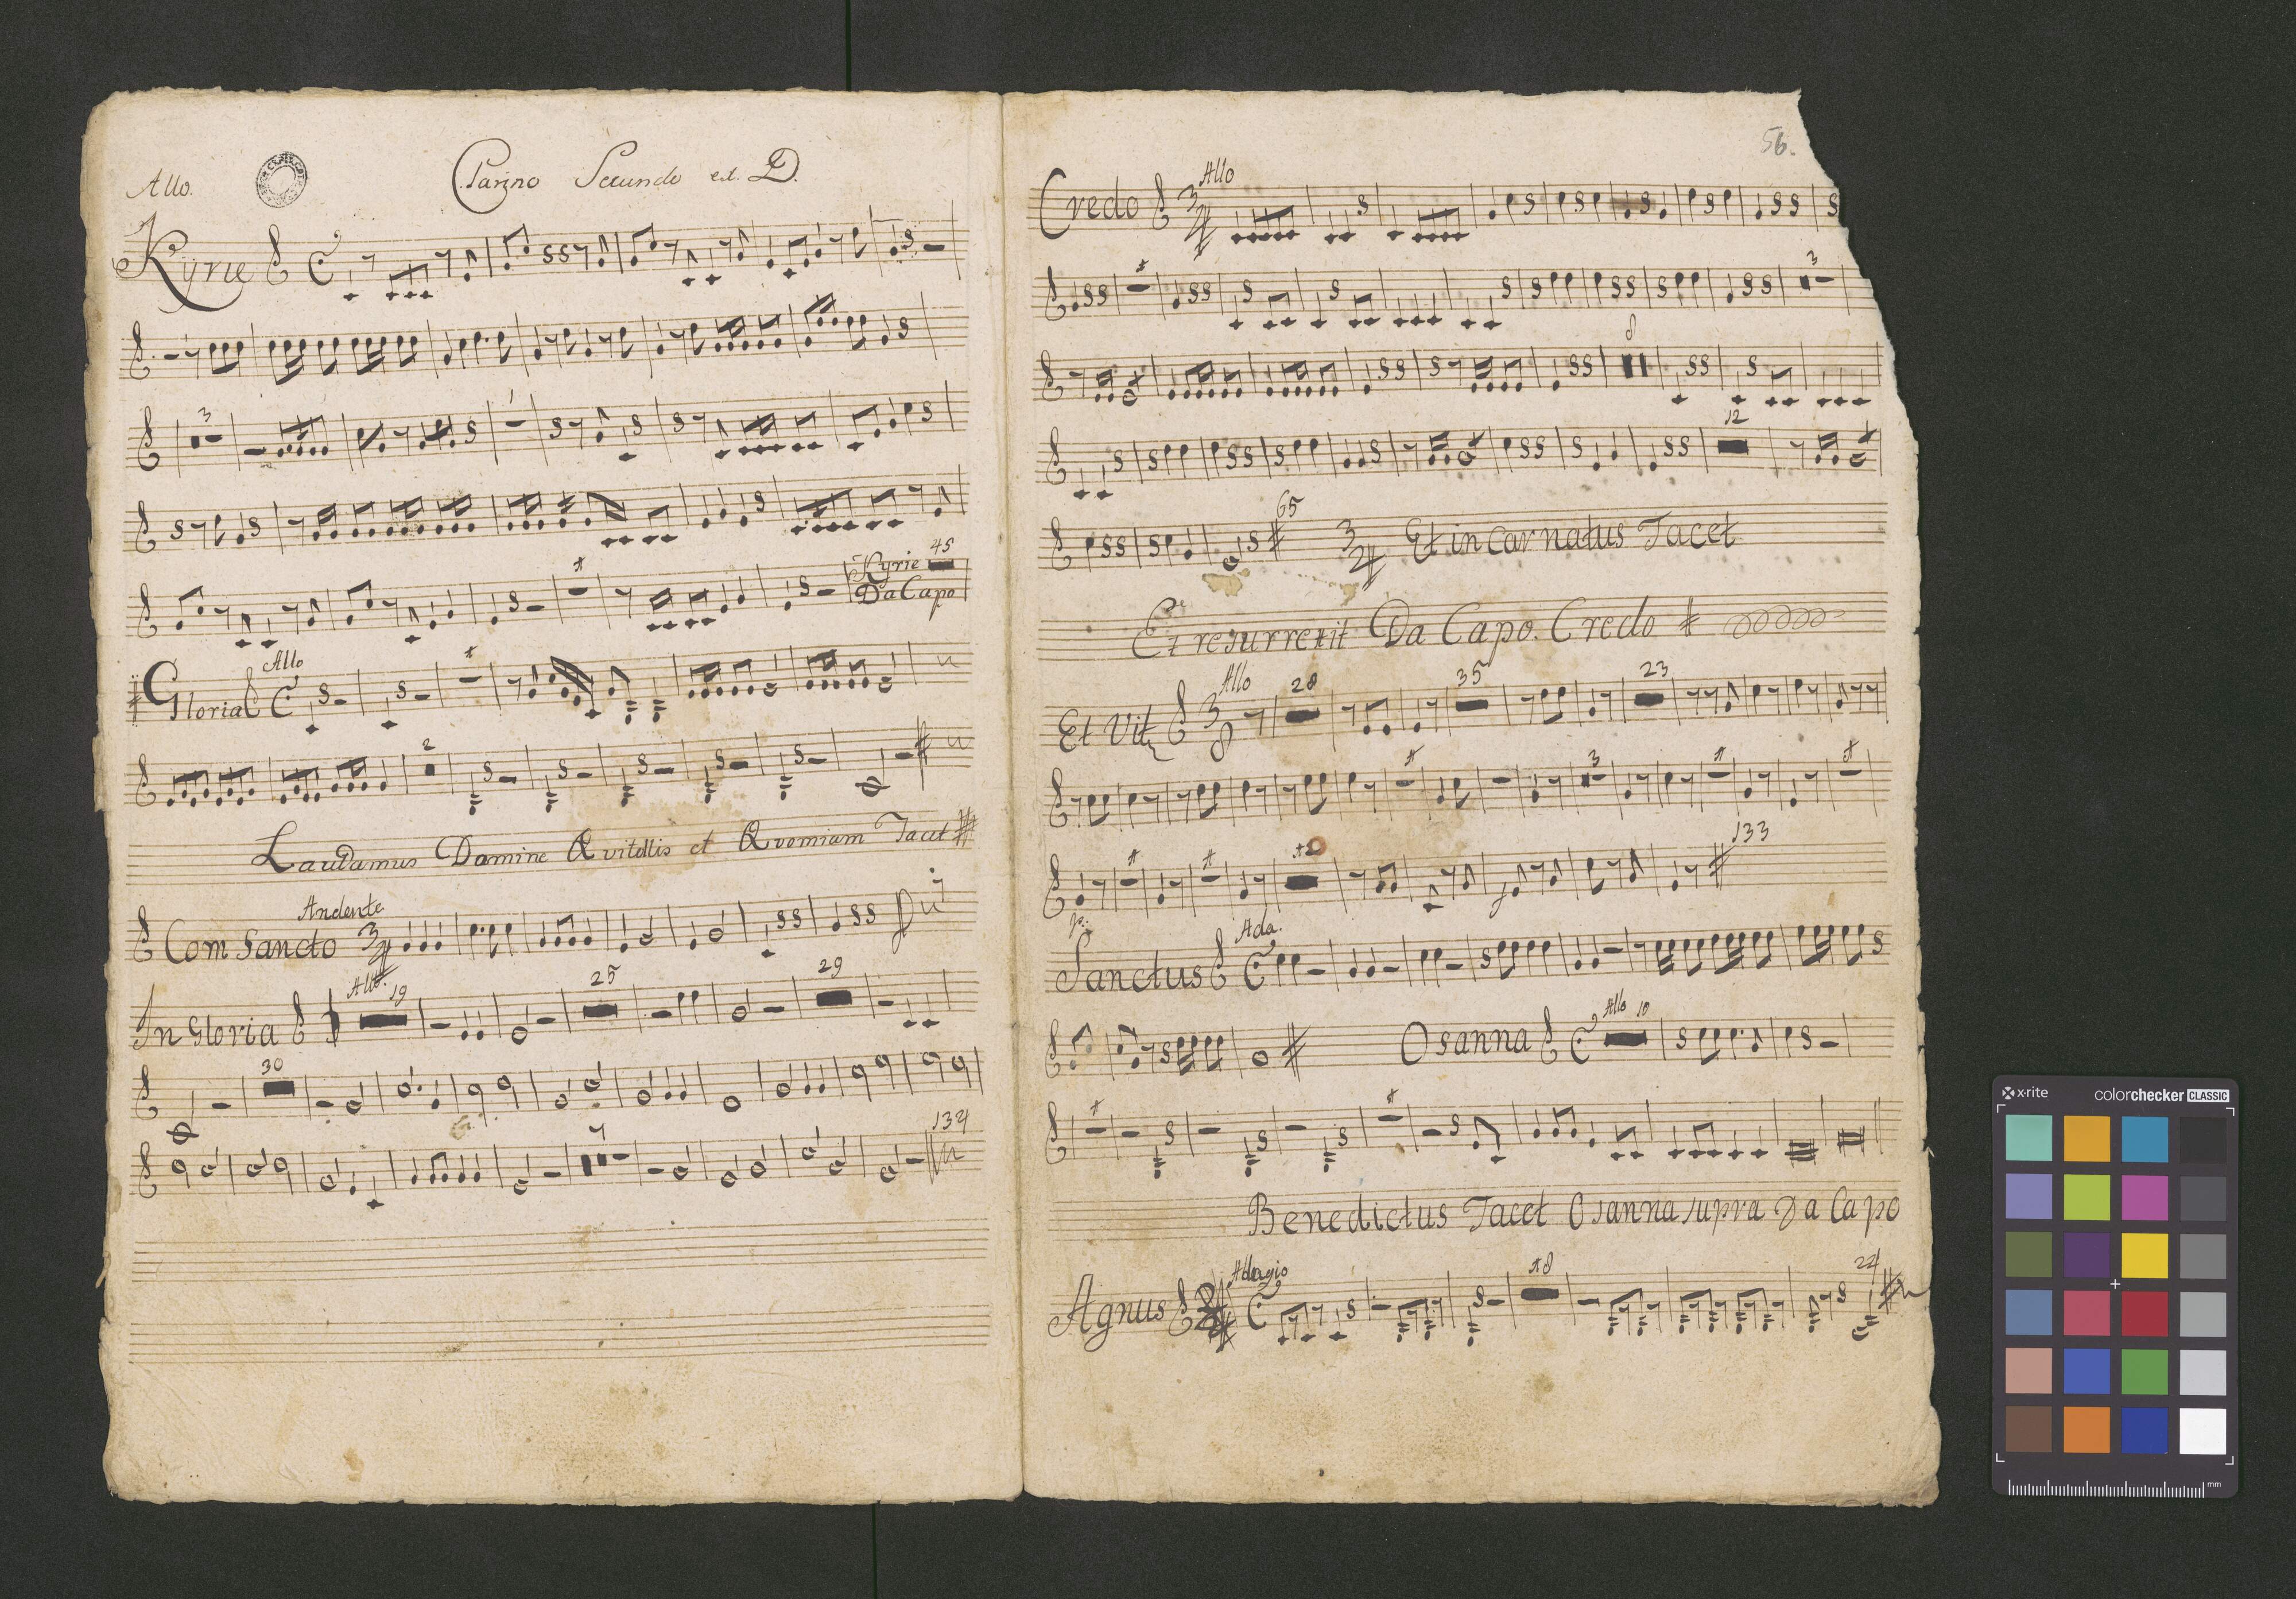 Allo.
Clarino Secundo ex. D.
Kyrie
3
Kyrie 45
Da Capo
Allo
Gloria
2
Laudamus Domine Qvitollis et Qvoniam Tacet
Andente
Com Sancto
Allo. 19 25 29
In Gloria
30
7 134
56.
Allo
Credo 3/4
3
8
12
65
3/4 Et in Carnatus Tacet
Et resurrexit Da Capo. Credo
Allo 28 35 23
Et Vit 3/8
3
12 133
p:
Ada.
Sanctus
Allo 10
Osanna
Benedictus Tacet Osanna supra Da Capo
Adagio 18 24
Agnus
x-rite colorchecker CLASSIC
mm